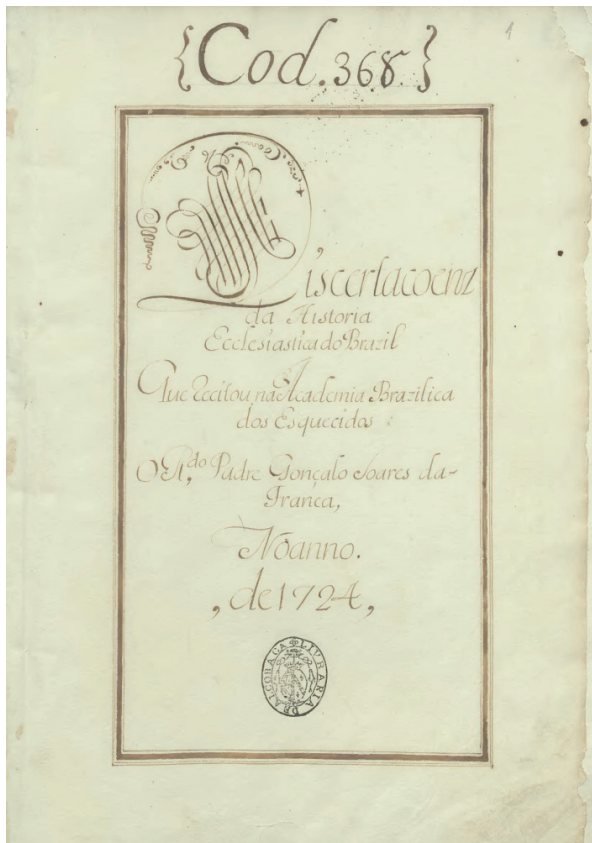 {Cod. 368.}
1
Discertacoenz
da Historia
Ecclesiastica do Brazil
Que Recitou, na Academia Brazilica
dos Esquecidos
O R.do Padre Gonçalo Soares da-
Franca,
No anno.
, de 1724,
LIVRARIA D ALCOBAÇA